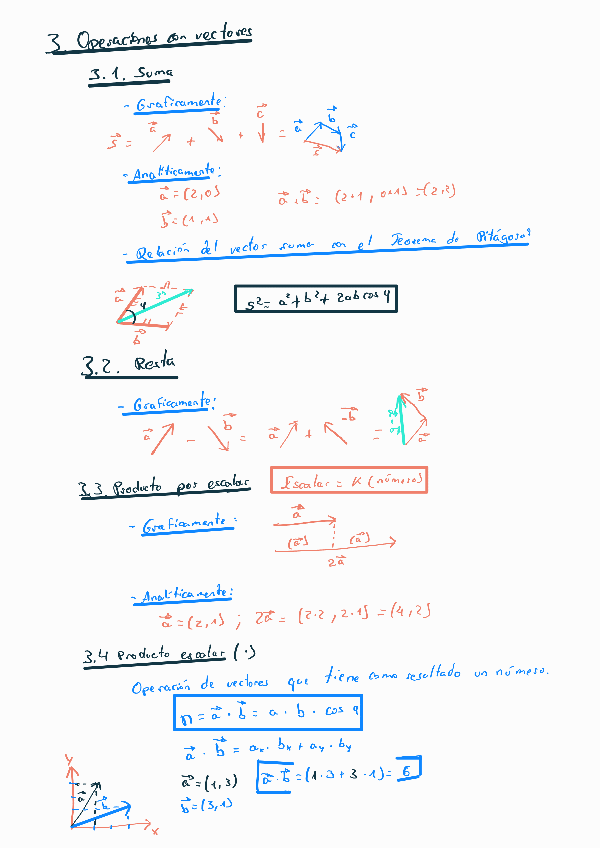 3. Operaciones con vectores
3.1. Suma
- Graficamente:
s = a + b + c = a b c c
- Analíticamente:
a = (2,0) a + b = (2+1, 0+1) = (2,2)
b = (1,1)
- Relación del vector suma con el Teorema de Pitágoras
a b φ
s² = a² + b² + 2ab cos φ
3.2. Resta
- Graficamente:
a - b = a + -b = a b
3.3. Producto por escalar Escalar = K (número)
- Graficamente:
a
(a) (a)
2a
- Analíticamente:
a = (2,1) ; 2a = (2·2, 2·1) = (4,2)
3.4 Producto escalar (·)
Operación de vectores que tiene como resultado un número.
n = a · b = a · b · cos φ
a · b = ax · bx + ay · by
a = (1,3) a · b = (1·3 + 3·1) = 6
b = (3,1)
y a b x